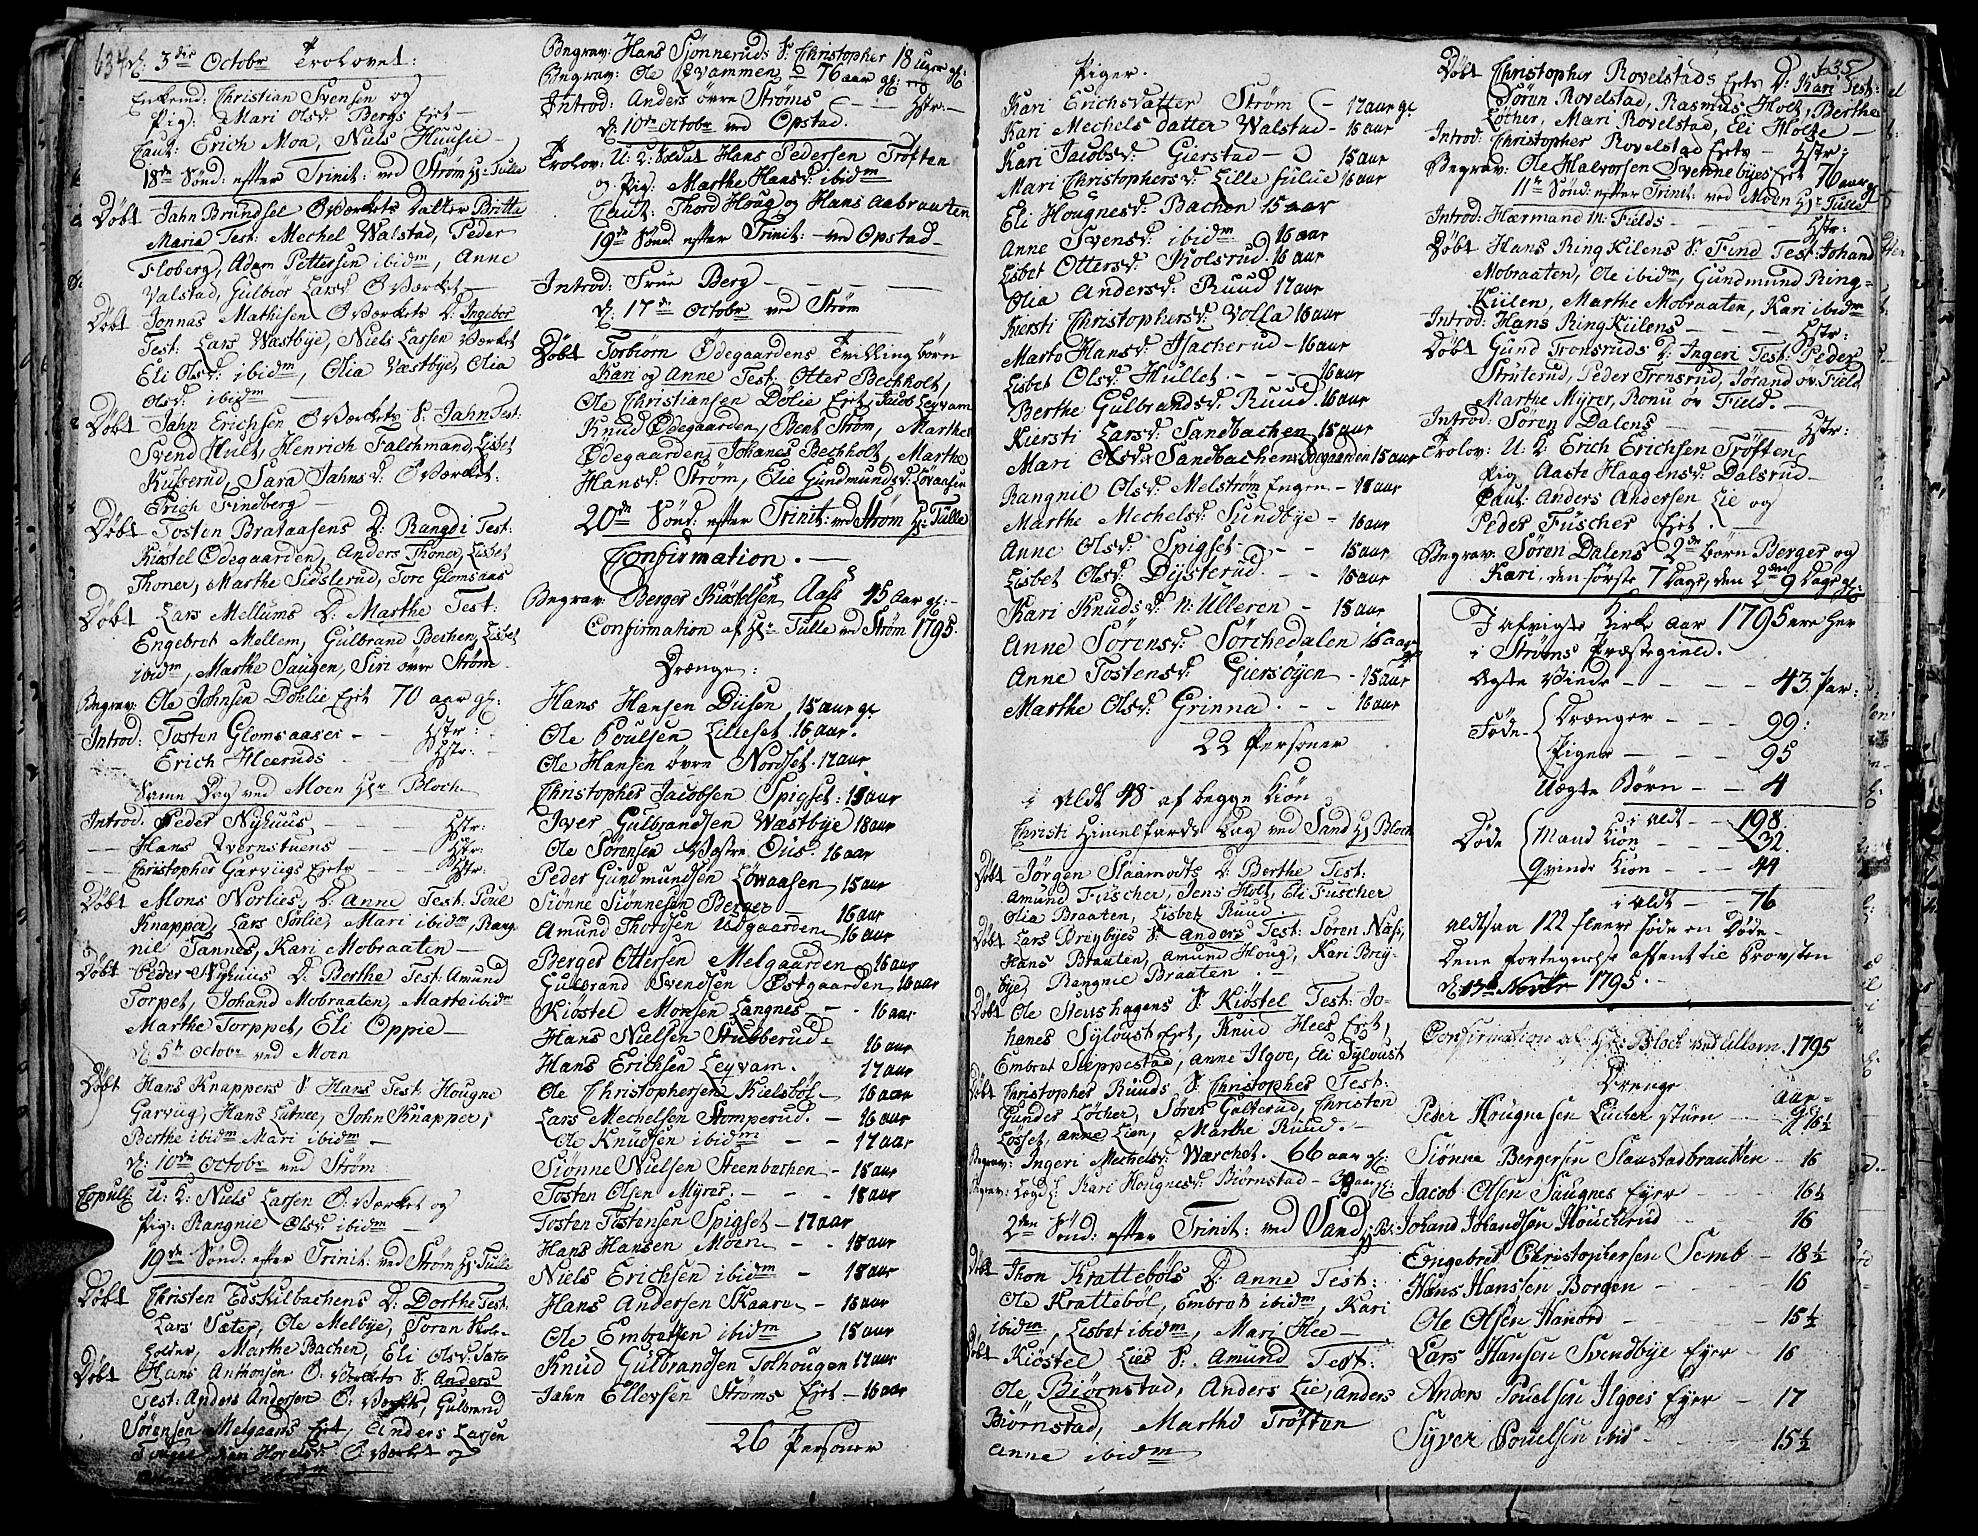 634
d. 3die Octobr Trolovet:
Enkemd: Christian Svensen og
Pig: Mari Olsd: Bergs Ejet
Caut: Erich Moa, Niels Huusie
18de Sønd: efter Trinit: ved Strøm Hr: Tulle
Døbt Jahn Brundsel Oværkets Datter Britta
Maria Test: Mechel Walstad, Peder
Floberg, Adam Pettersen ibidm, Anne
Valstad, Gulbiør Larsd Oværket
Døbt Jonnas Mathisen Oværkets D: Ingebor
Test: Lars Væstbye, Niels Larsen Værket
Eli Olsd: ibidm, Olia Væstbye, Olia
Olsd ibidm
Døbt Jahn Erichsen Oværkets S: Jahn Test:
Svend Hult, Henrich Falchmand, Lisbet
Kusserud, Sara Jahnsd: Oværket:
Erich Findberg
Døbt Tosten Brataasens D: Rangdi Test:
Kiøstel Ødegaarden, Anders Thoner, Lisbet
Thoner, Marthe Sidslerud, Tore Glomsaas
Døbt Lars Mellums D: Marthe Test:
Engebret Mellem, Gulbrand Berchen, Lisbet
ibidm, Marthe Saugen, Siri övre Strøm
Begrav: Ole Johnsen Dohlie Ejet 70 aar gl:
Introd: Tosten Glomsaases - - Hstr:
Erich Heeruds - - Hstr:
Samme Dag ved Moen Hr Bloch
Introd. Peder Nyhuus - - - Hstr:
Hans Qvernstuens - - Hstr:
Christopher Garviigs Ejets - - Hstr:
Døbt Mons Norlies D: Anne Test: Poul
Knapper, Lars Sørlie, Mari ibidm, Rang
nil Tannes, Kari Mobraaten
Døbt Peder Nyhuus D: Berthe Test: Amund
Torpet, Johand Mobraaten, Marte ibidm
Marthe Torppet, Eli Oppie
d. 5te Octobr ved Moen
Døbt Hans Knappers S Hans Test: Hougne
Garviig, Hans Lutnee, John Knapper,
Berthe ibidm Mari ibidm
d: 10de October ved Strøm
Copul: U: S: Niels Larsen O: Værket og
Pig: Rangnie Olsd ibidm
19de Sønd: efter Trinit: ved Strøm Hr Tulle
Døbt Christen Edskilbachens D: Dorthe Test:
Lars Sæter, Ole Melbye, Søren Skole-
holder, Marthe Bachen, Eli Olsd: Sæter
Døbt Hans Anthonsen O: Værkets S Anders
Test: Anders Andersen O: Værket, Gulbrand
Sørensen Melgaards Ejet, Anders Larsen
O Værket og
Begrav: Hans Sjønneruds S: Christopher 18 uger gl:
Begrav: Ole Qvammen 76 aar gl:
Introd: Anders övre Strøms - - Hstr:
d: 10de Octobr ved Opstad.
Trolov: U: S: Soldat Hans Pedersen Trøften
og Pig: Marthe Hansd: ibidm
Caut: Thord Houg og Hans Aabraaten
19de Sønd: efter Trinit: ved Opstad
Introd: True Berg
d: 17de Octobr ved Strøm
Døbt Torbiørn Ødegaardens Tvilling børn
Kari og Anne Test: Otter Bechholt,
Ole Christiansen Dølie Ejet Jacob Leyvam
Knud Ødegaarden, Bent Strøm, Marthe
Ødegaarden, Johanes Bechholt, Marthe
Hansd: Strøm, Elie Gundmundsd: Løvaasen
20de Sønd: efter Trinit: ved Strøm Hr: Tulle
Confirmation.
Begrav: Berger Kiøstelsen Aas 45 Aar gl:
Confirmation af Hr Tulle ved Strøm 1795.
Drænge:
Hans Hansen Diisen 15 aar gl
Ole Poulsen Lilleset 16 aar.
Ole Hansen øvre Nordset 17 aar
Christopher Jacobsen Spigset: 18 aar
Iver Gulbrandsen Væstbye 18 aar
Ole Sørensen Vestre Ous. 16 aar
Peder Gundmundsen Løvaasen, 15 aar
Siønne Siønnesen Berger 16 aar
Amund Thordsen Udgaarden 16 aar
Berger Ottersen Melgaarden 16 aar
Gulbrand Svendsen Østgaarden 16 aar
Kiøstel Monsen Langnes - - 16 aar
Hans Nielsen Stubberud - 16 aar
Hans Erichsen Leyvam. 17 aar
Ole Christophersen Kielsbøl - 16 aar
Lars Mechelsen Stomperud. - 16 aar
Ole Knudsen ibidm - - 17 aar
Siønne Nielsen Steenbachen - 15 aar
Tosten Olsen Myrer - - - 18 aar
Tosten Tostensen Spigset - 17 aar
Hans Hansen Moen - - 18 aar
Niels Erichsen ibidm - 18 aar
Hans Andersen Skaaru - 15 aar
Ole Embretsen ibidm 15 aar
Knud Gulbrandsen Tolhougen 17 aar
Jahn Ellevsen Strøms Ejet - 16 aar
26 Personer
Piger.
Kari Erichsdatter Strøm - 17 aar gl
Kari Mechels datter Walstad - 16 aar
Kari Jacobsd: Gierstad - 15 aar
Mari Christophersd: Lille fulue 16 aar
Eli Hougnesd: Bachen 15 aar
Anne Svensd: ibidm 16 aar
Lisbet Ottersd: Skolsrud. 16 aar
Olia Andersd: Ruud 17 aar
Kiersti Christophersd: Volla 16 aar
Marte Hansd: Isacherud - 16 aar
Lisbet Olsd: Hullet - - - 16 aar
Berthe Gulbrandsd: Ruud. 16 aar
Kiersti Larsd: Sandbachen 15 aar
Mari Olsd: Sandbachen Ødegaarden 15 aar
Rangnil Olsd: Melstrøm Engen - 18 aar
Marthe Mechelsd: Sundbye - 16 aar
Anne Olsd: Spigset - - - 15 aar
Lisbet Olsd: Dysterud - - 15 aar
Kari Knudsd: N: Ulleren - 15 aar
Anne Sørensd: Sorchedalen 16 aar
Anne Tostensd: Giersøyen - 15 aar
Marthe Olsd: Grinna. - - 16 aar
22 Personer
i Aldt 48 af begge Kiøn
Christi Himmelfarts Dag ved Sand Hr Bloch
Døbt Jørgen Slaamodts D: Berthe Test:
Amund Fuscher, Jens Holt, Eli Fuscher
Olia Braaten, Lisbet Ruud
Døbt Lars Breybyes S: Anders Test: Søren Næss,
Hans Braaten, Amund Houg, Kari Brey-
bye, Rangnie Braaten.
Døbt Ole Steershagens S Kiøstel Test: Jo-
hanes Syloust Ejet, Knud Hees Ejet,
Embret Sleppestad, Anne Ilgoe, Eli Syloust
Døbt Christopher Ruuds S: Christopher Test:
Gunder Løcher, Søren Gulterud, Christen
Løsset, Anne Lien, Marthe Ruud.
Begrav: Ingeri Mechelsd: Warchet. 66 aar gl:
Begrav: Kari Hougnesd: Biørnstad - 30 aar gl:
2den Sønd: efter Trinit: ved Sand, Hr Bl:
Døbt Thon Krattebøls D: Anne Test:
Ole Krattebøl, Embret ibidm, Kari
ibidm, Lisbet ibidm, Mari Hee
Døbt Kiøstel Lies S: Amund Test:
Ole Biørnstad, Anders Lie, Anders
Biørnstad, Marthe Trøften
Anne ibidm
635
Døbt Christopher Rovelstads Ejets D: Kari Test:
Søren Rovelstad, Rasmus Holt, Berthe
Løther, Mari Rovelstad, Eli Holte
Introd: Christopher Rovelstad Ejets - Hstr:
Begrav: Ole Halvorsen Svennebyes Ejet 76 aar gl
11te Sønd: efter Trinit: ved Moen Hr Tulle
Introd: Hærmand M: Fields - - - Hstr:
Døbt Hans Ring Kilens S. Find Test: Johand
Mobraaten, Ole ibidm, Gundmund Ring-
Kiilen, Marthe Mobraaten, Kari ibidm
Introd: Hans Ring Kiilens - - - Hstr:
Døbt Gund Tronsruds D: Ingeri Test: Peder
Struterud, Peder Tronsrud, Jørand öv: Field
Marthe Myrer, Ronu öv Field.
Introd: Søren Dalens - - Hstr:
Trolov: U: S: Erich Erichsen Trøften
Pig Aaste Haagensd: Dalsrud
Caut: Anders Andersen Lie og
Peder Fuscher Ejet.
Begrav: Søren Dalens 2de børn Berger og
Kari, den første 7 Dage, den 2den 9 Dage gl:
I afvigte Kirke Aar 1795 ere her
i Strøms Præstegield.
Ægte Viede - - - - 43 Par:
Fødte Drænger - - - 99:
Piger - - - 95
Uægte Børn - - 4
i Aldt - - 198
Døde Mand Kiøn - - 32
Qvinde Kiøn - - 44
i Aldt - - 76
Altsaa 122 fleere fødde en Døde
Denne fortegnelse afsent til Provsten
1795.
Confirmation af Hr: Bloch ved Ullern. 1795
Drenge
Aar gl:
Peder Hougnesen Lucher stuen - - 16½
Siønne Bergersen Slaastadbraatten - 16
Jacob Olsen Saugnes Eyer - - 16½
Johand Johandsen Houcherud - - 16
Engebret Christophersen Semb - 18½
Hans Hansen Borgen - - 16
Ole Olsen Hanord - - - 15½
Lars Hansen Svendbye Eyer - 16
Anders Pouelsen Ilgoes Eyer - 17
Syver Pouelsen ibid - - - 15½